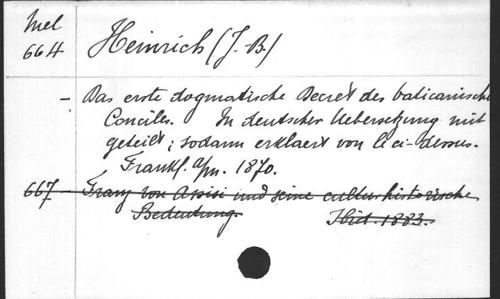 Mel
664
Heinrich (J. B.)
- Das erste dogmatische Decret des vaticanische
Conciles. In deutscher Uebersetzung mit
geteilt; sodann erklaert von le ci-dessus.
Frankf. a/m. 1870.
667 Franz von Assisi und seine culturhistorische
Bedeutung. Ibid. 1883.